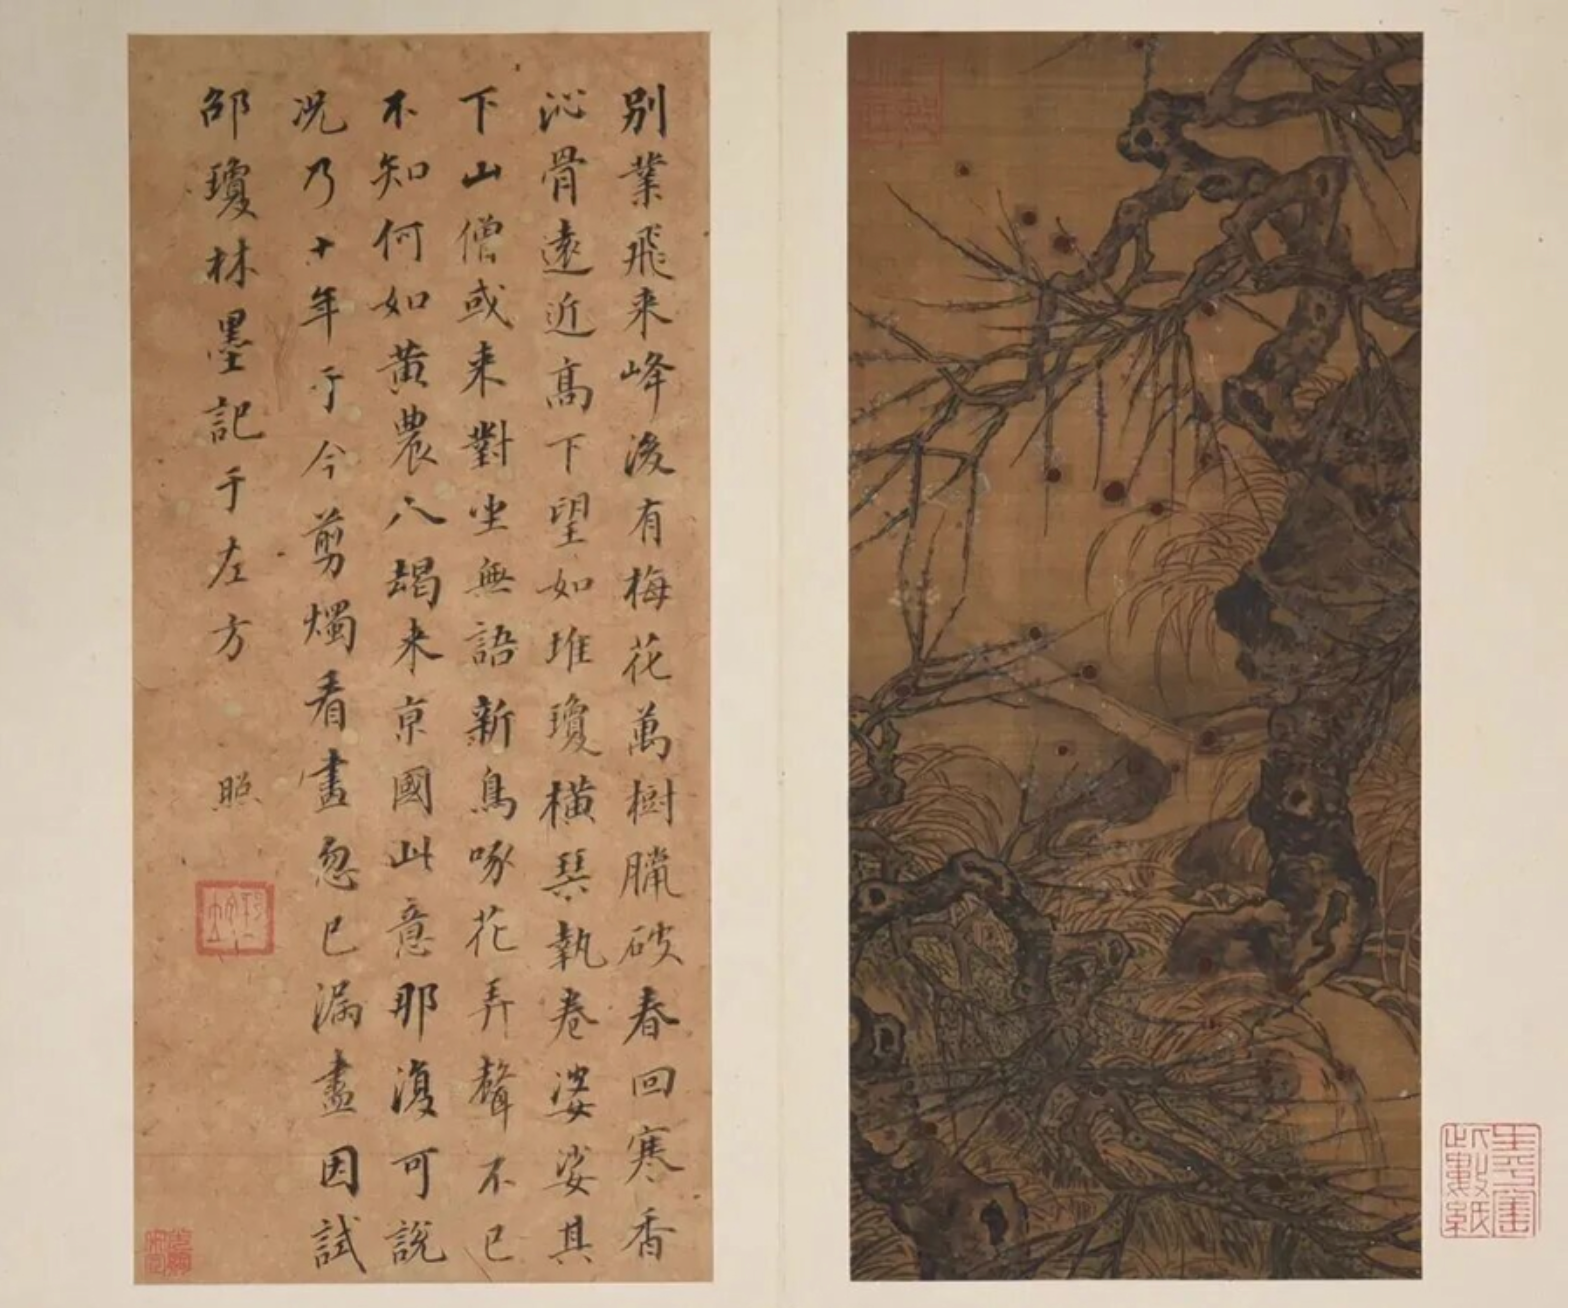 別業飛来峰後有梅花萬樹臘破春回寒香
沁骨遠近高下望如堆瓊橫琴執卷婆娑其
下山僧或来對坐無語新鳥啄花弄聲不已
不知何如黄農人朅来京國此意那復可說
況乃十年于今剪燭看畫忽已漏盡因試
邵瓊林墨記于左方
照